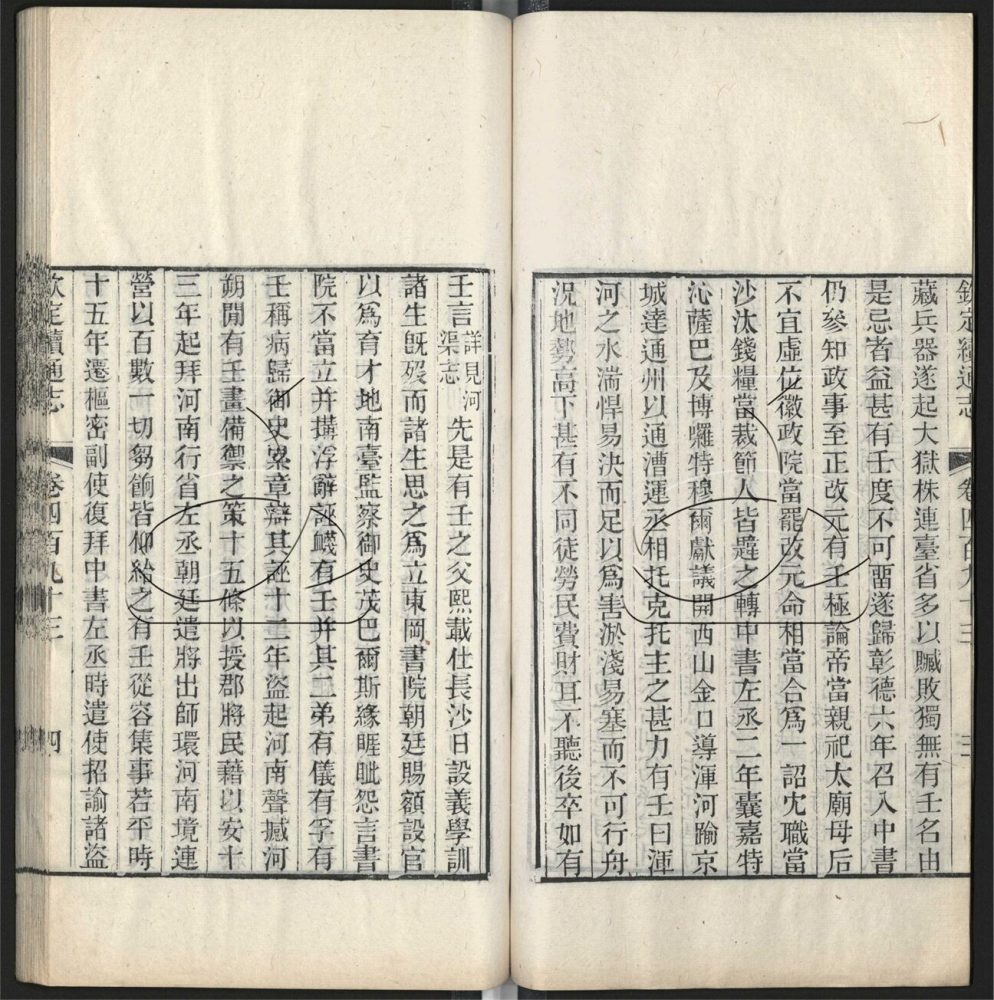 欽定續通志 卷四百九十三 三
藏兵器遂起大獄株連臺省多以贓敗獨無有壬名由
是忌者益甚有壬度不可畱遂歸彰德六年召入中書
仍參知政事至正改元有壬極論帝當親祀太廟母后
不宜虛位徽政院當罷改元命相當合爲一詔冗職當
沙汰錢糧當裁節人皆韙之轉中書左丞二年囊嘉特
沁薩巴及博囉特穆爾獻議開西山金口導渾河踰京
城達通州以通漕運丞相托克托主之甚力有壬曰渾
河之水湍悍易決而足以爲害淤淺易塞而不可行舟
況地勢高下甚有不同徒勞民費財耳不聽後卒如有
壬言詳見河渠志先是有壬之父熙載仕長沙日設義學訓
諸生旣歿而諸生思之爲立東岡書院朝廷賜額設官
以爲育才地南臺監察御史茂巴爾斯緣睚眦怨言書
院不當立并搆浮辭誣衊有壬并其二弟有儀有孚有
壬稱病歸御史累章辯其誣十二年盜起河南聲撼河
朔閒有壬畫備禦之策十五條以授郡將民藉以安十
三年起拜河南行省左丞朝廷遣將出師環河南境連
營以百數一切芻餉皆仰給之有壬從容集事若平時
十五年遷樞密副使復拜中書左丞時遣使招諭諸盜
欽定續通志 卷四百九十三 四